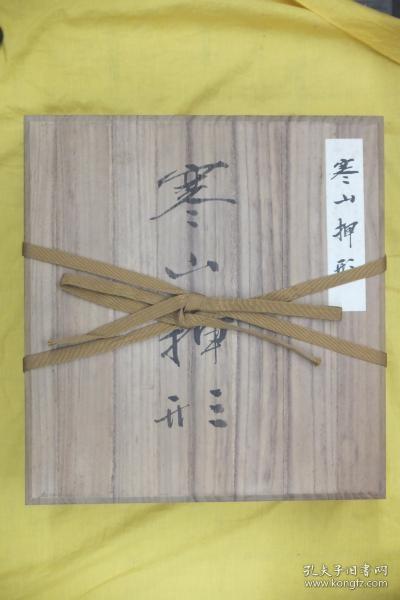 寒山押形
寒山押形
孔夫子旧书网
www.kongfz.com